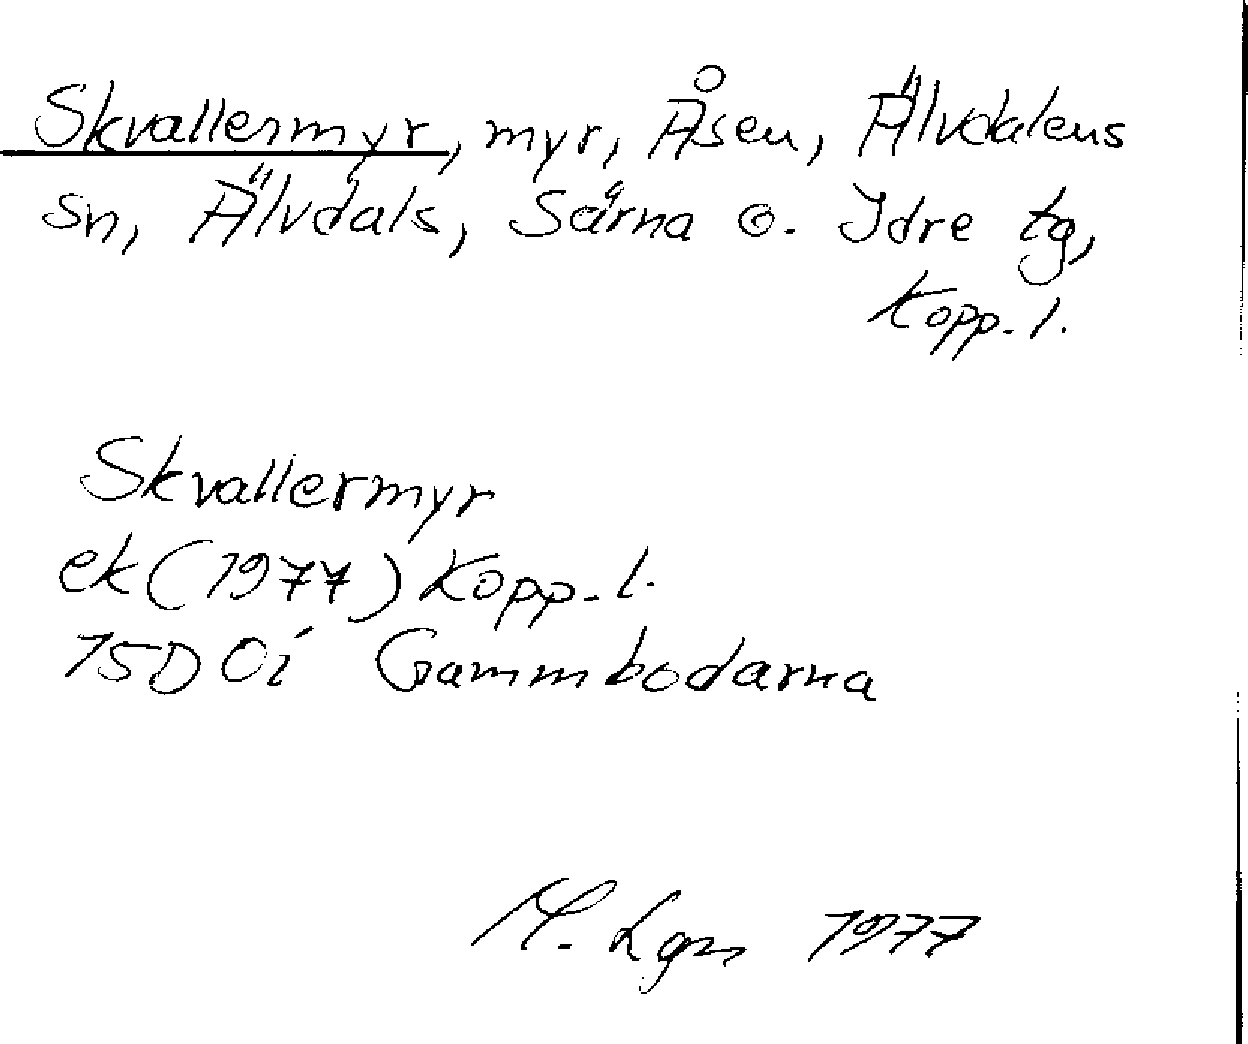 Skvallermyr, myr, Åsen, Älvdalens
sn, Älvdals, Särna o. Idre tg,
Kopp. l.
Skvallermyr
ek (1977) Kopp. l.
15D 0i Gammbodarna
M. Lgn 1977